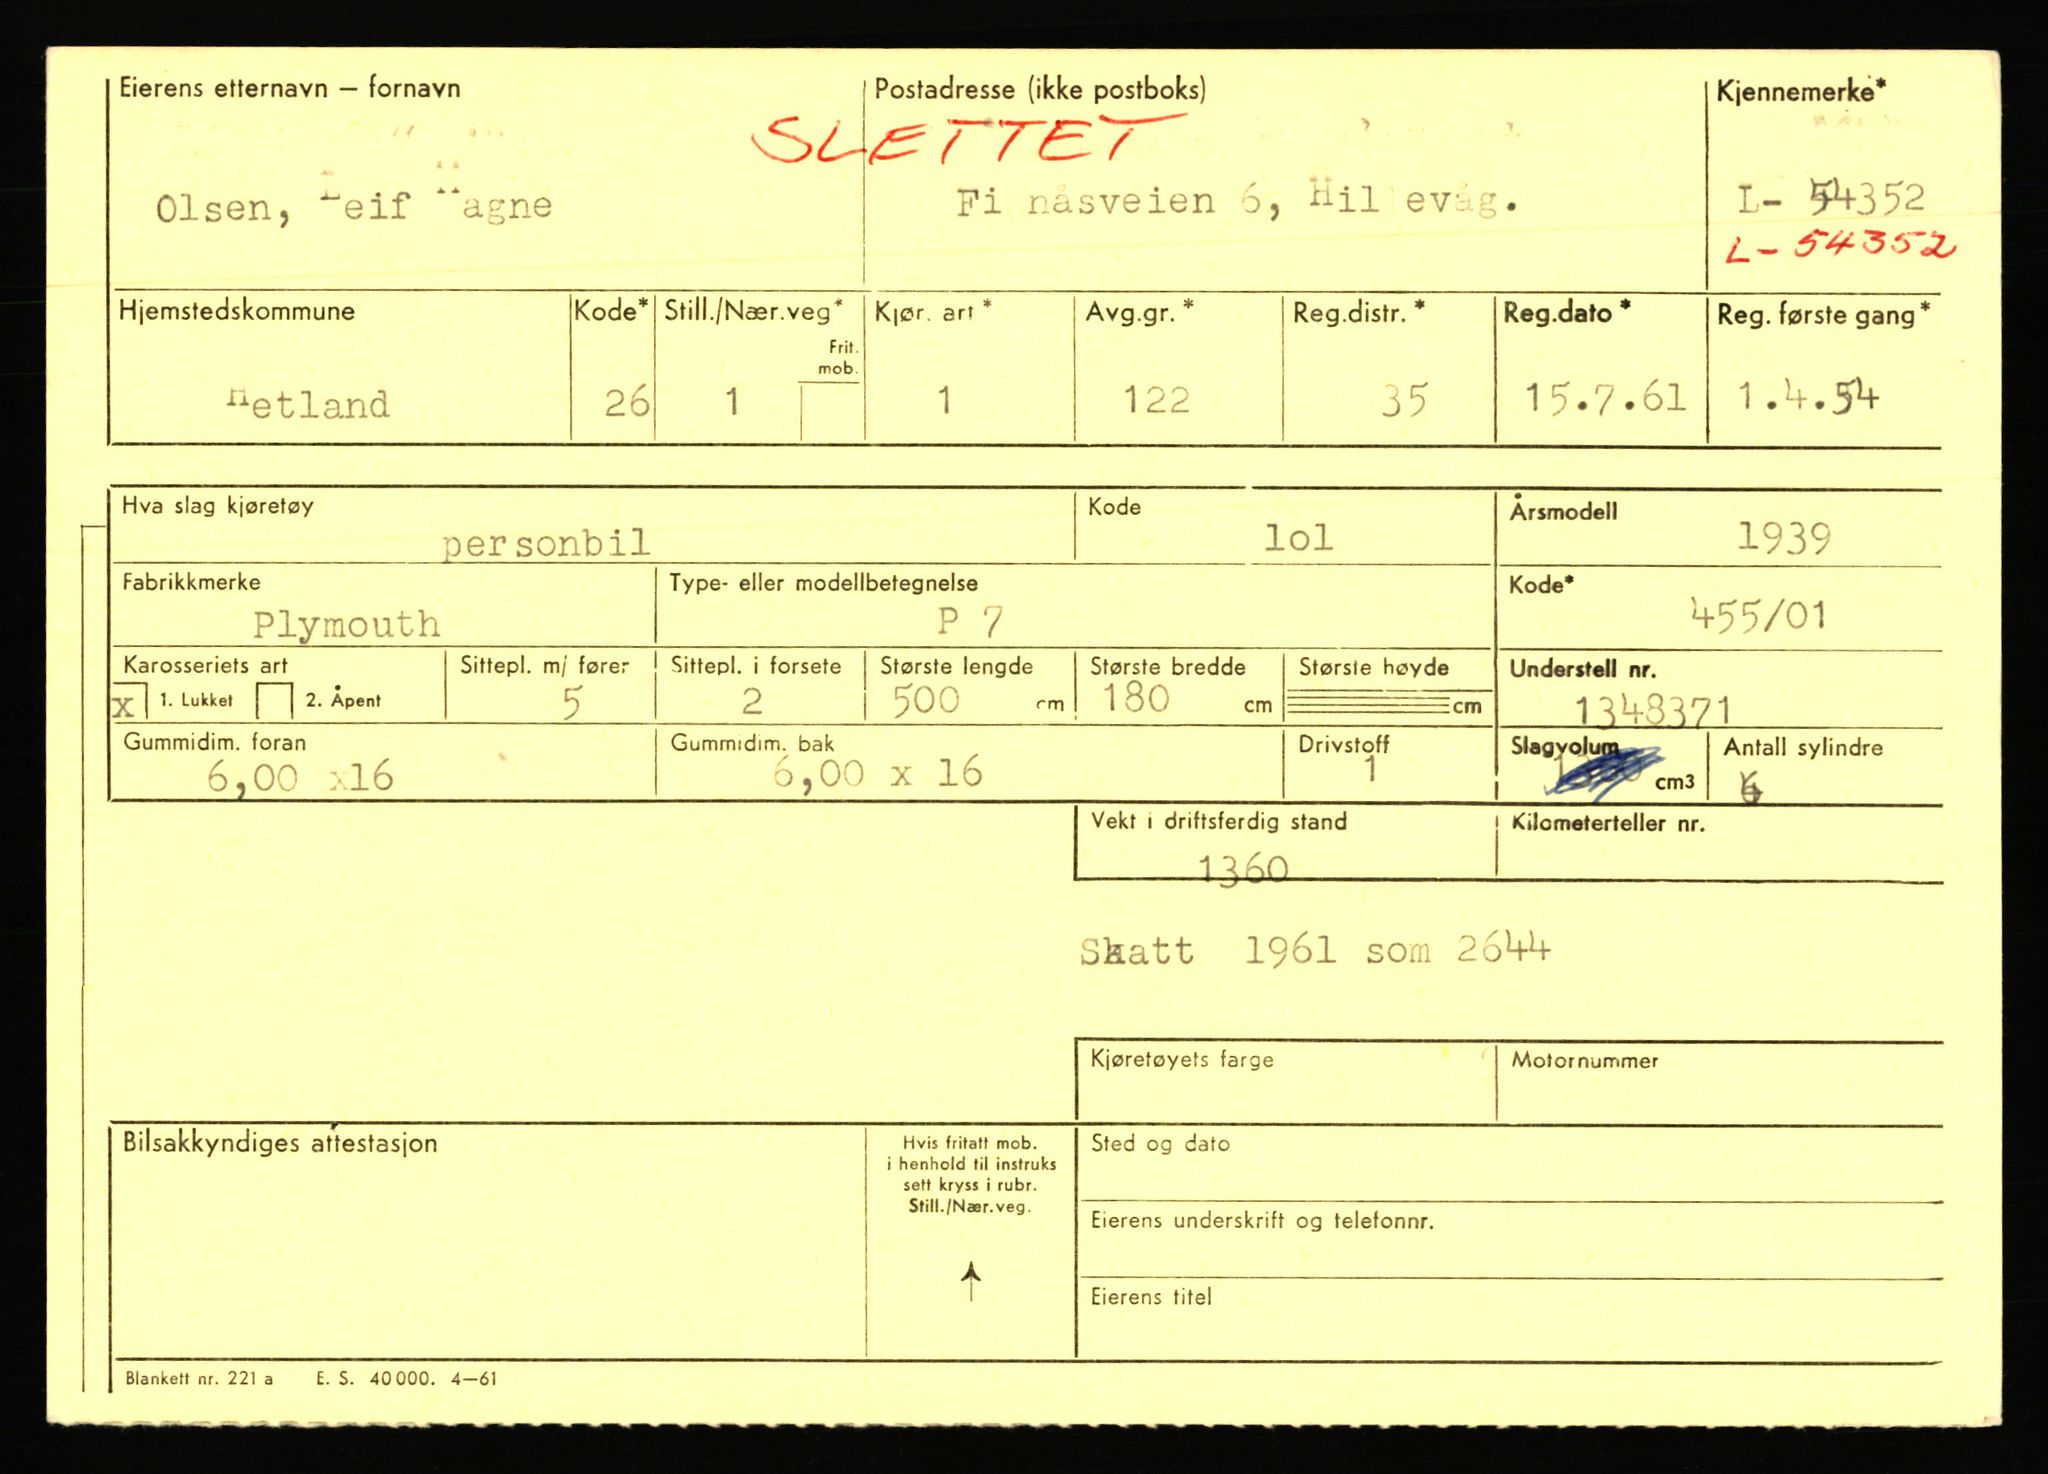 Eierens etternavn — fornavn
Postadresse (ikke postboks)
Kjennemerke*
SLETTET
Olsen, Leif Magne
Fi nåsveien 6, Hillevåg.
L- 54352
L-54352
Hjemstedskommune
Kode*
Still./Nær.veg*
Frit. mob.
Kjør. art*
Avg.gr.*
Reg.distr.*
Reg.dato*
Reg. første gang*
Hetland
26
1
1
122
35
15.7.61
1.4.54
Hva slag kjøretøy
Kode
Årsmodell
personbil
lol
1939
Fabrikkmerke
Type- eller modellbetegnelse
Kode*
Plymouth
P 7
455/01
Karosseriets art
Sittepl. m/ fører
Sittepl. i forsete
Største lengde
Største bredde
Største høyde
Understell nr.
x 1. Lukket
2. Åpent
5
2
500 cm
180 cm
cm
1348371
Gummidim. foran
Gummidim. bak
Drivstoff
Slagvolum
Antall sylindre
6,00 x16
6,00 x 16
1
cm3
6
Vekt i driftsferdig stand
Kilometerteller nr.
1360
Skatt 1961 som 2644
Kjøretøyets farge
Motornummer
Bilsakkyndiges attestasjon
Hvis fritatt mob.
i henhold til instruks
sett kryss i rubr.
Still./Nær.veg.
Sted og dato
Eierens underskrift og telefonnr.
Eierens titel
Blankett nr. 221 a E. S. 40 000. 4—61